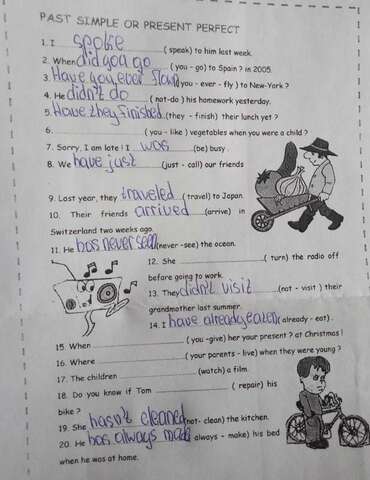 PAST SIMPLE OR PRESENT PERFECT
1. I spoke ( speak) to him last week.
2. When did you go ( you - go) to Spain ? in 2005.
3. Have you ever flown (you - ever - fly ) to New-York ?
4. He didn't do ( not-do ) his homework yesterday.
5. Have they finished (they - finish) their lunch yet ?
6. ( you - like ) vegetables when you were a child ?
7. Sorry, I am late ! I was (be) busy
8. We have just (just - call) our friends
9. Last year, they traveled ( travel) to Japan.
10. Their friends arrived (arrive) in
Switzerland two weeks ago.
11. He has never seen (never -see) the ocean.
12. She ( turn) the radio off
before going to work.
13. They didn't visit (not - visit ) their
grandmother last summer.
14. I have already eaten ( already - eat) .
15. When ( you -give) her your present ? at Christmas !
16. Where ( your parents - live) when they were young ?
17. The children (watch) a film.
18. Do you know if Tom ( repair) his
bike ?
19. She hasn't cleaned (not- clean) the kitchen.
20. He has always made always - make) his bed
when he was at home.